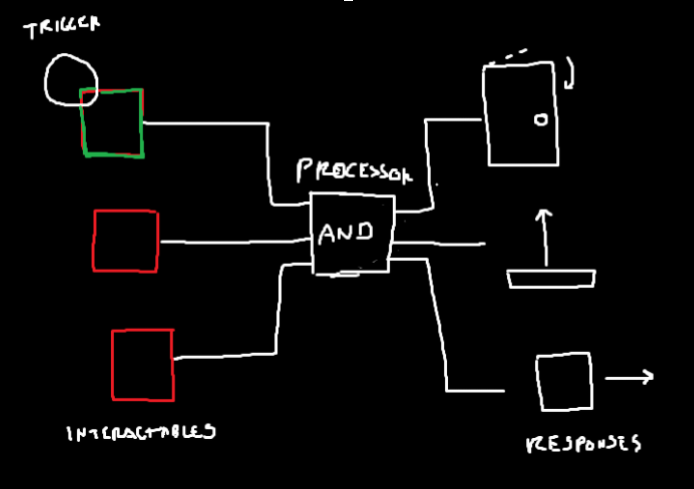 TRIGGER
PROCESSOR
AND
INTERACTABLES
RESPONSES